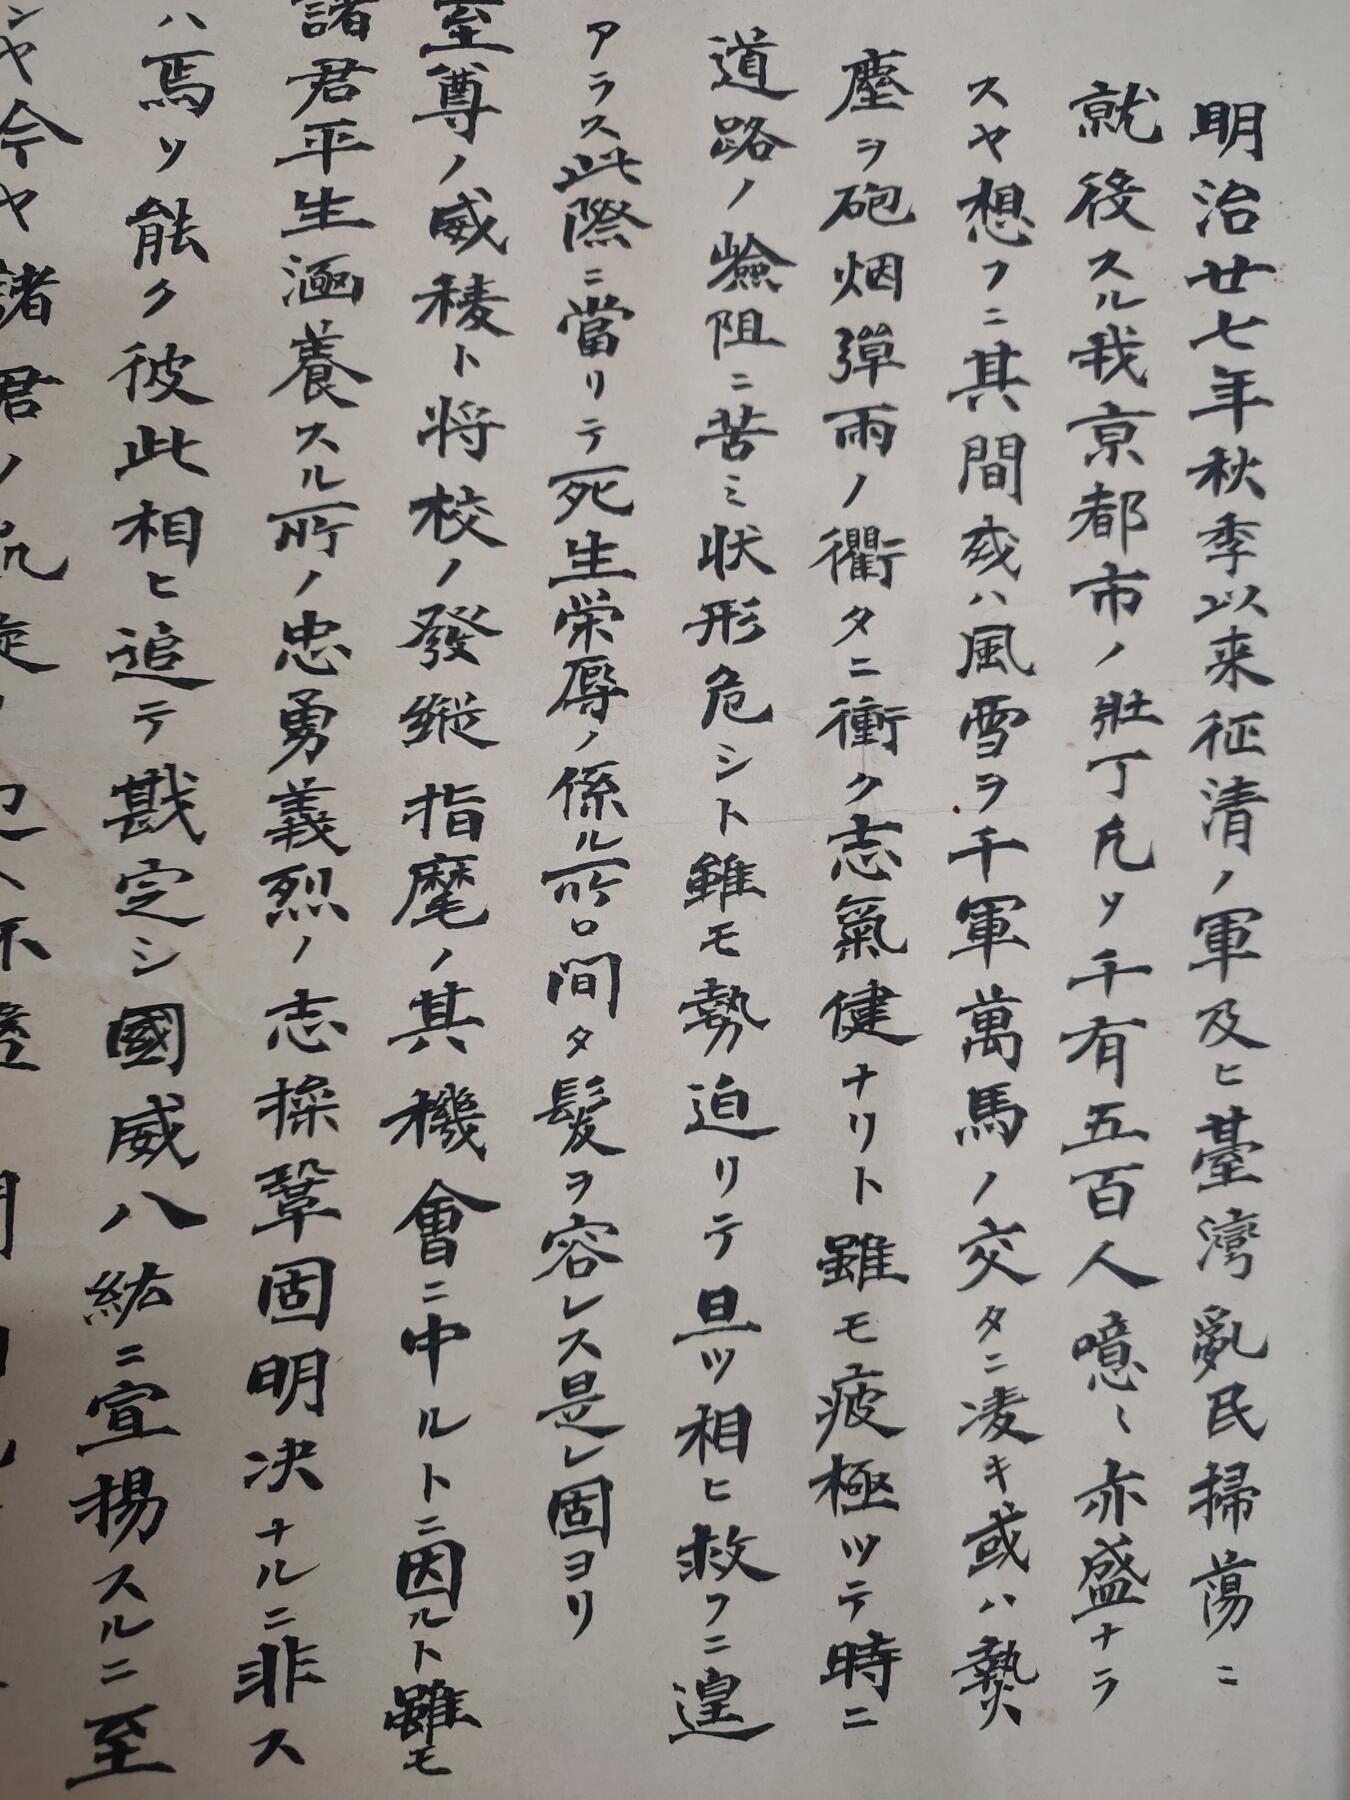 明治廿七年秋季以来征清ノ軍及ヒ臺灣亂民掃蕩ニ
就役スル我京都市ノ壯丁凡ソ千有五百人噫〻亦盛ナラ
スヤ想フニ其間或ハ風雪ヲ千軍萬馬ノ交タニ凌キ或ハ熱
塵ヲ砲烟彈雨ノ衢タニ衝ク志氣健ナリト雖モ疲極ツテ時ニ
道路ノ嶮阻ニ苦ミ状形危シト雖モ勢迫リテ且ツ相ヒ救フニ遑
アラス此際ニ當リテ死生栄辱ノ係ル所ロ間タ髮ヲ容レス是レ固ヨリ
至尊ノ威稜ト将校ノ發縱指麾ノ其機會ニ中ルトニ因ルト雖モ
諸君平生涵養スル所ノ忠勇義烈ノ志操鞏固明决ナルニ非ス
ハ焉ソ能ク彼此相ヒ追テ戡定シ國威八紘ニ宣揚スルニ至
ンヤ今ヤ諸君ノ凱旋